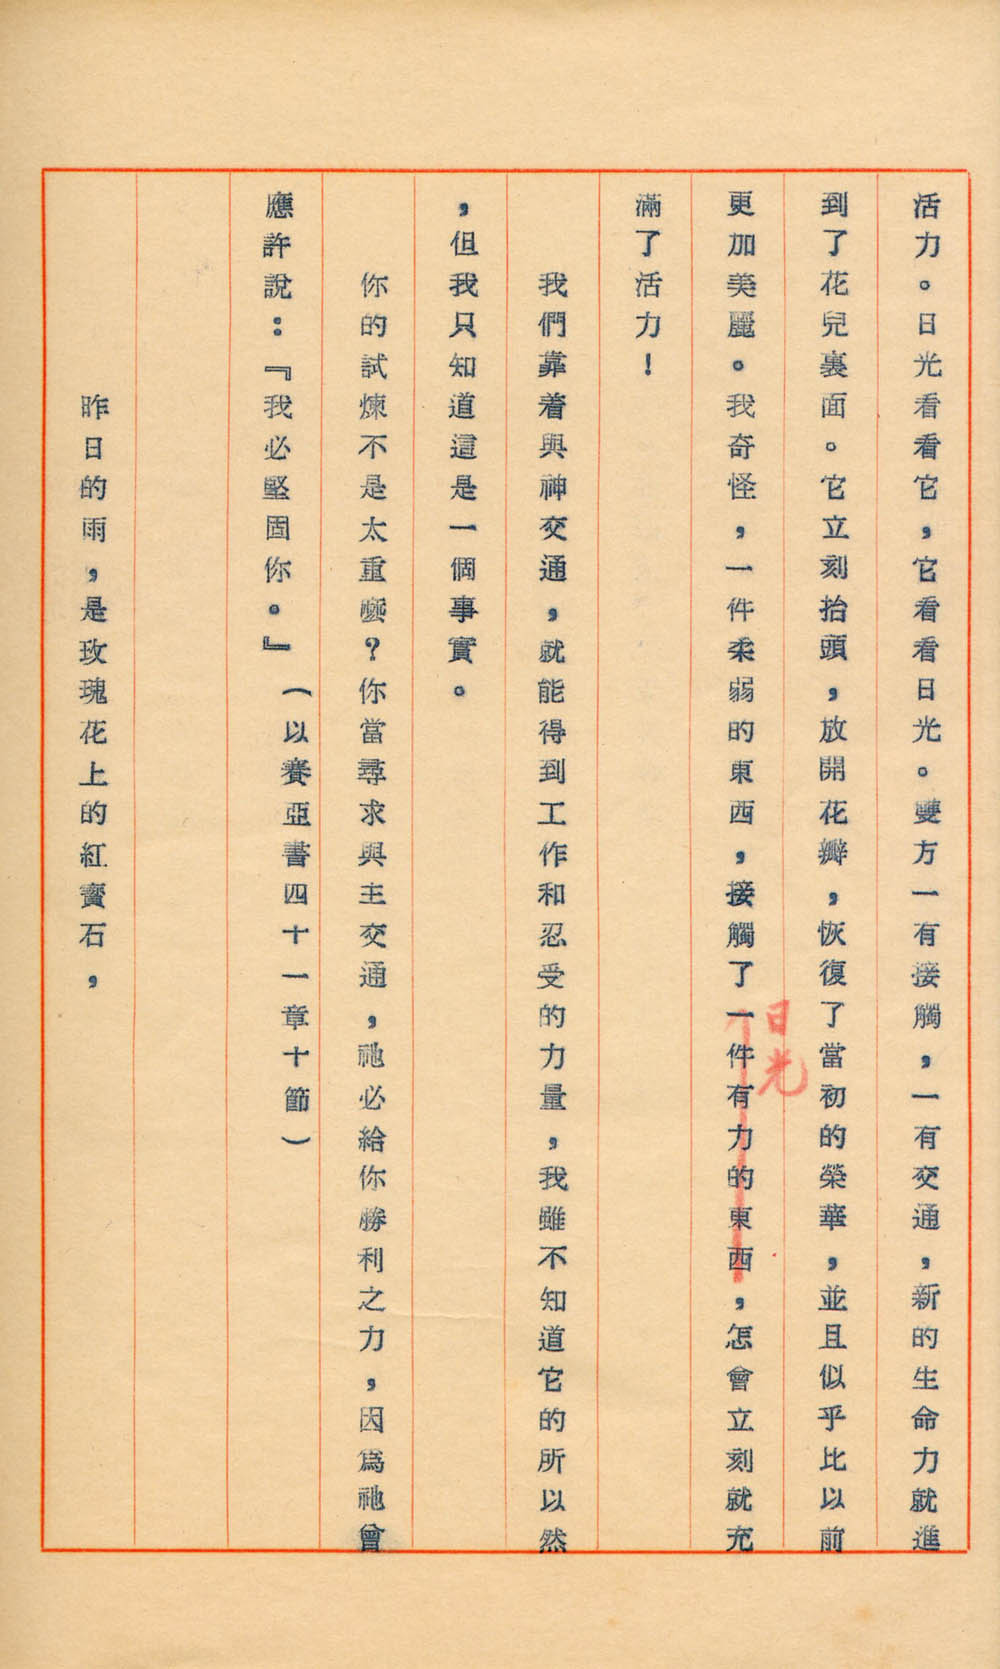 活力。日光看看它，它看看日光。雙方一有接觸，一有交通，新的生命力就進
到了花兒裏面。它立刻抬頭，放開花瓣，恢復了當初的榮華，並且似乎比以前
日光
更加美麗。我奇怪，一件柔弱的東西，接觸了一件有力的東西，怎會立刻就充
滿了活力！
我們靠着與神交通，就能得到工作和忍受的力量，我雖不知道它的所以然
，但我只知道這是一個事實。
你的試煉不是太重麼？你當尋求與主交通，祂必給你勝利之力，因爲祂曾
應許說：『我必堅固你。』（以賽亞書四十一章十節）
昨日的雨，是玫瑰花上的紅寶石，